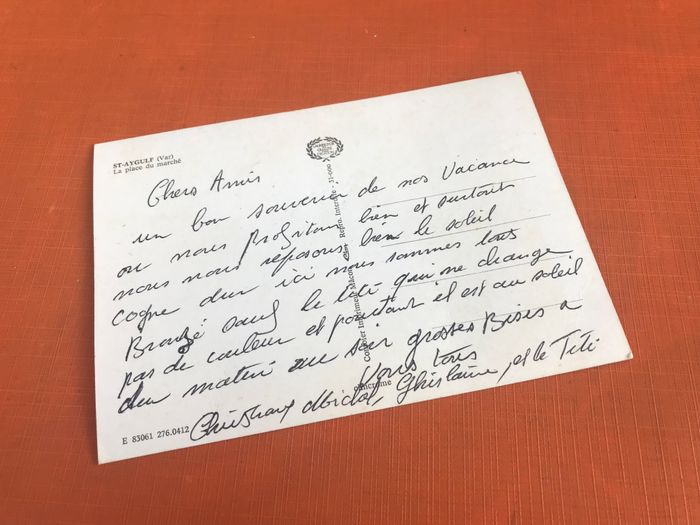 ST-AYGULF (Var)
La place du marché
Chers Amis
un bon souvenir de nos vacance
ou nous profitons bien et surtout
nous nous réposons bien le soleil
cogne dur ici nous sommes tous
Bronzé sauf le titi qui ne change
pas de couleur et pourtant il est au soleil
du matin au soir grosses Bises a
vous tous
Ghislaine, et le Titi
Combier Imprimeur Mâcon
Repro. Interdite
E 83061 276.0412